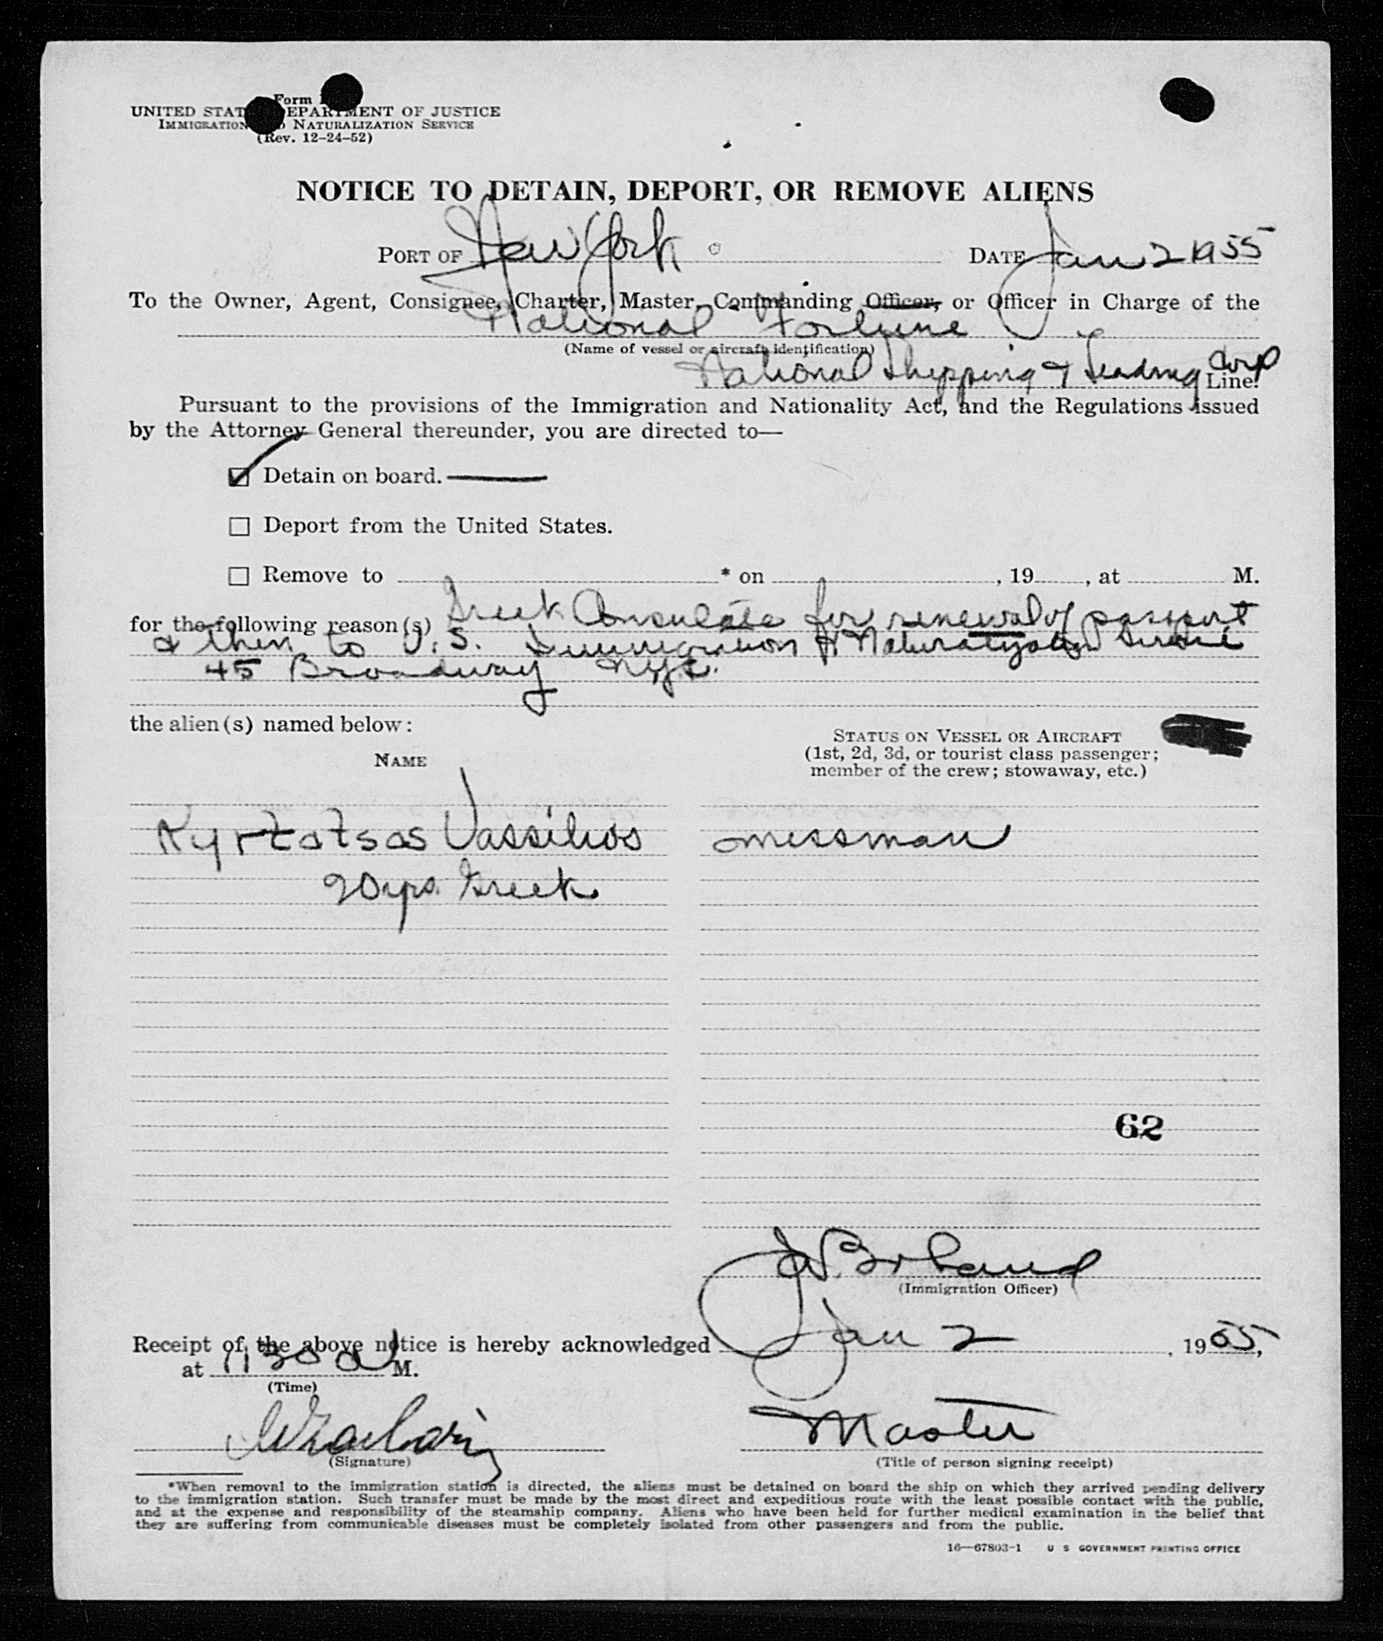 Form
UNITED STATES DEPARTMENT OF JUSTICE
IMMIGRATION AND NATURALIZATION SERVICE
(Rev. 12-24-52)
NOTICE TO DETAIN, DEPORT, OR REMOVE ALIENS
PORT OF New York DATE Jan 2 1955
To the Owner, Agent, Consignee, Charter, Master, Commanding Officer, or Officer in Charge of the
National Fortune
(Name of vessel or aircraft identification)
National Shipping & Trading Corp Line.
Pursuant to the provisions of the Immigration and Nationality Act, and the Regulations issued
by the Attorney General thereunder, you are directed to—
☑ Detain on board.
☐ Deport from the United States.
☐ Remove to * on , 19 , at M.
for the following reason(s) Greek Consulate for renewal of passport
& then to U.S. Immigration & Naturalization Service
45 Broadway NYC.
the alien(s) named below:
STATUS ON VESSEL OR AIRCRAFT
(1st, 2d, 3d, or tourist class passenger;
member of the crew; stowaway, etc.)
NAME
Kyrtatsas Vassilios messman
20 yrs. Greek
62
Borland
(Immigration Officer)
Receipt of the above notice is hereby acknowledged Jan 2, 1955,
at 1130 A M.
(Time)
Master
(Signature) (Title of person signing receipt)
*When removal to the immigration station is directed, the aliens must be detained on board the ship on which they arrived pending delivery
to the immigration station. Such transfer must be made by the most direct and expeditious route with the least possible contact with the public,
and at the expense and responsibility of the steamship company. Aliens who have been held for further medical examination in the belief that
they are suffering from communicable diseases must be completely isolated from other passengers and from the public.
16—67803-1 U S GOVERNMENT PRINTING OFFICE